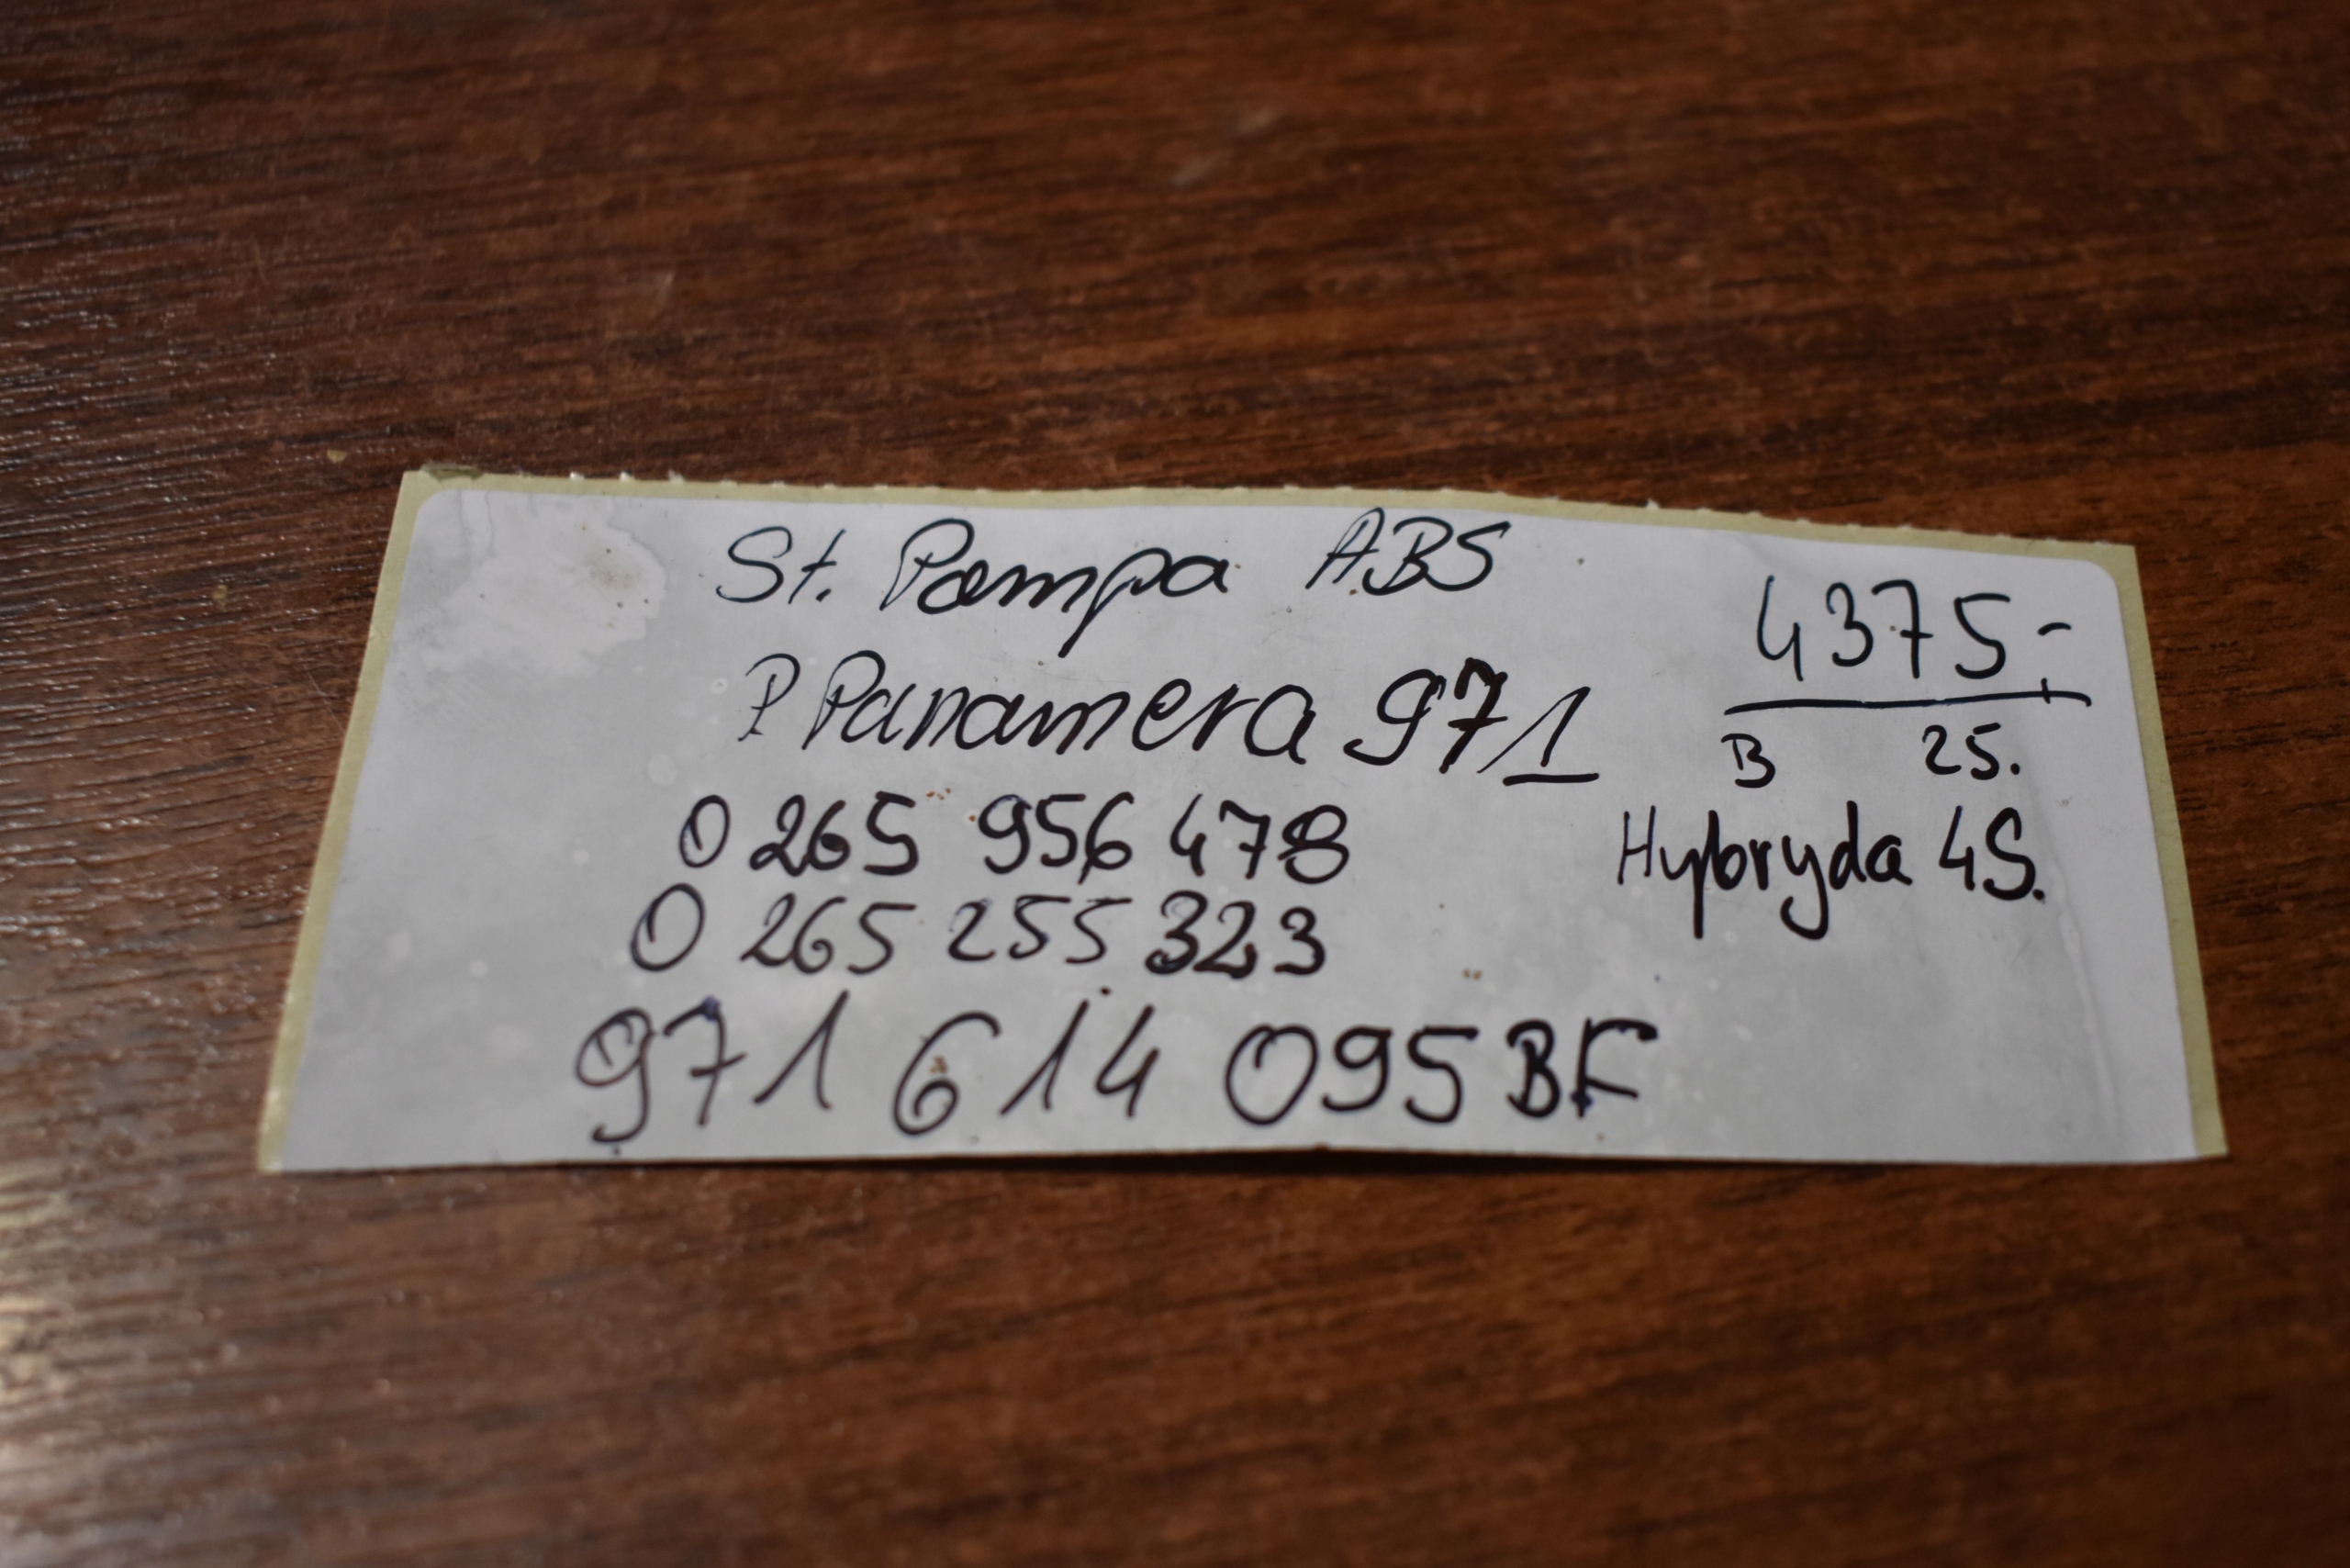 St. Pompa ABS
P Panamera 971
0 265 956 478
0 265 255 323
971 614 095 BF
4375,-
B 25.
Hybryda 4S.